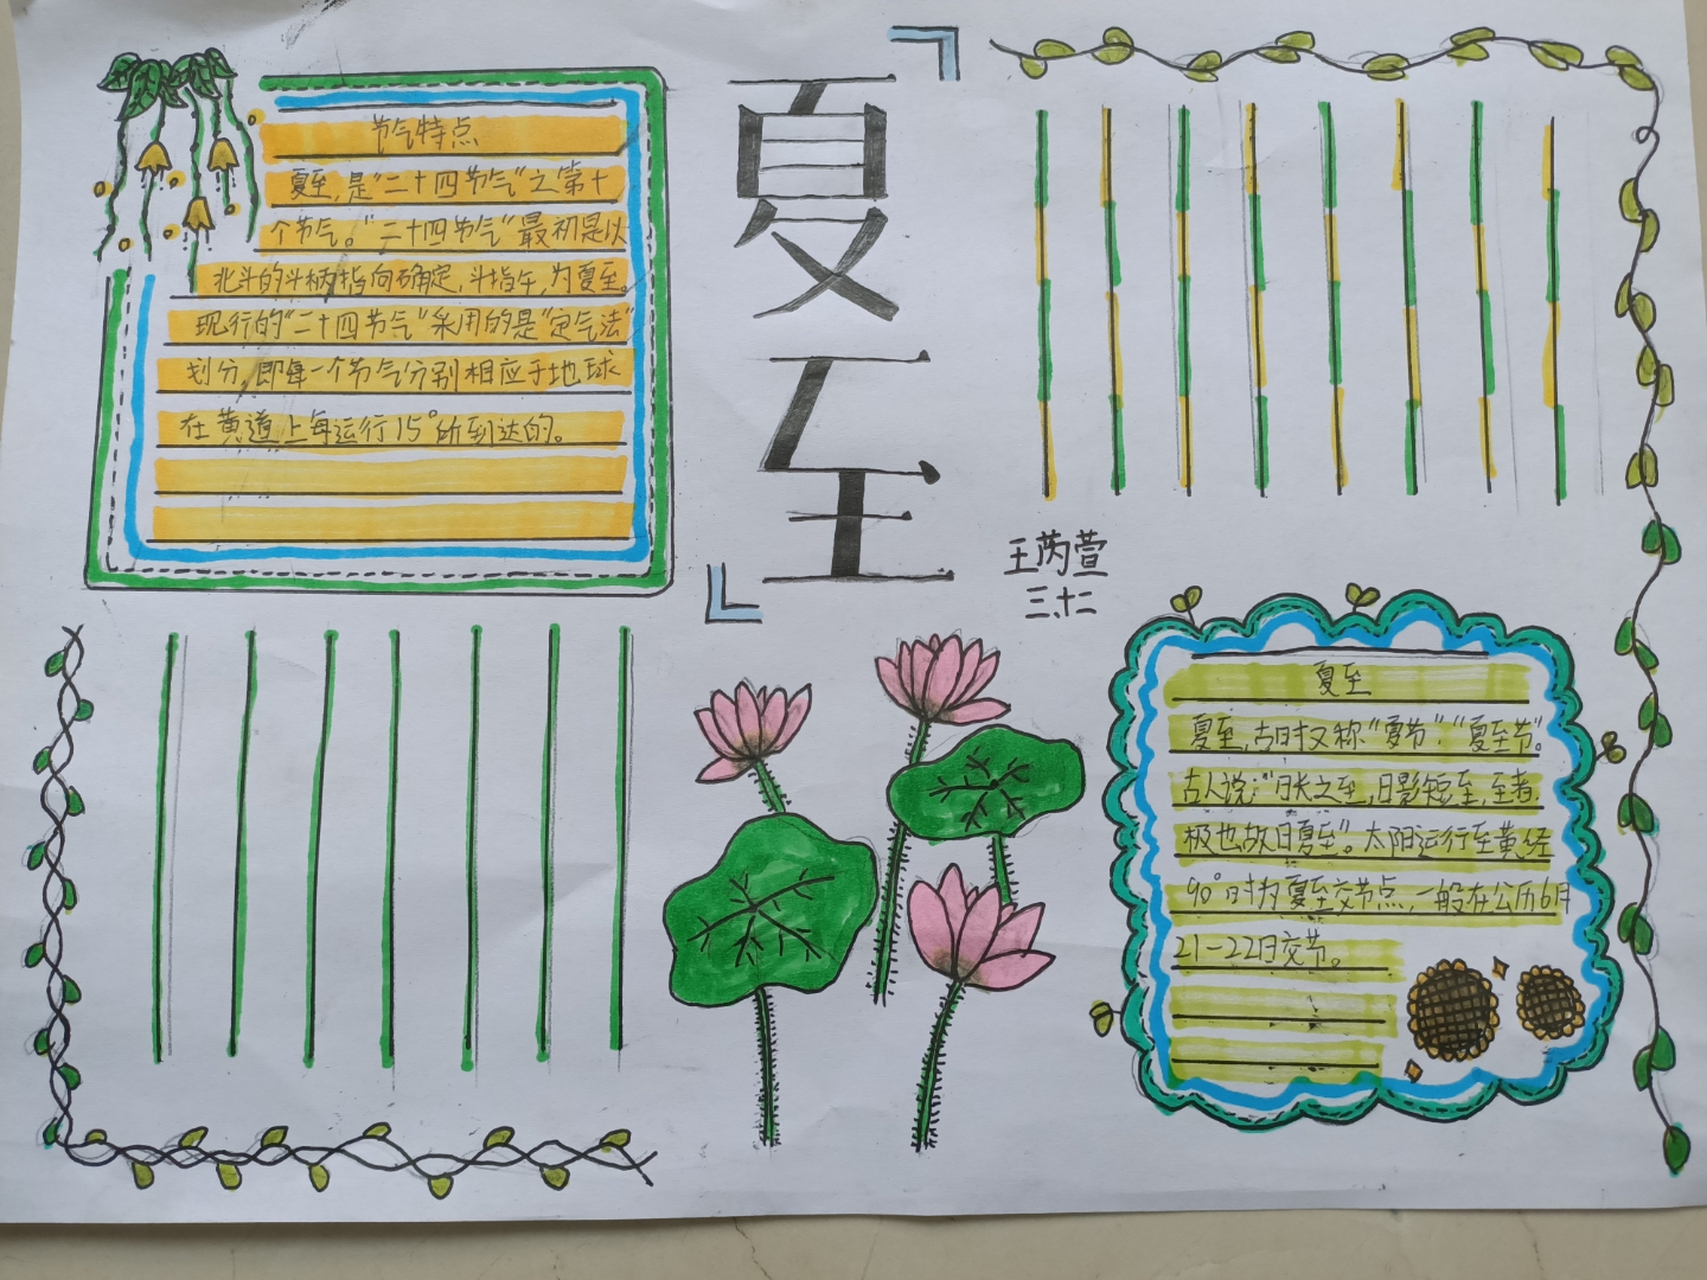 节气特点
夏至,是“二十四节气”之第十
个节气。“二十四节气”最初是以
北斗的斗柄指向确定,斗指午,为夏至。
现行的“二十四节气”采用的是“定气法”
划分,即每一个节气分别相应于地球
在黄道上每运行15°所到达的。
夏至
王芮萱
三、十二
夏至
夏至,古时又称“夏节”“夏至节”。
古人说:“日长之至,日影短至,至者,
极也故曰夏至”。太阳运行至黄经
90°时为夏至交节点,一般在公历6月
21-22日交节。